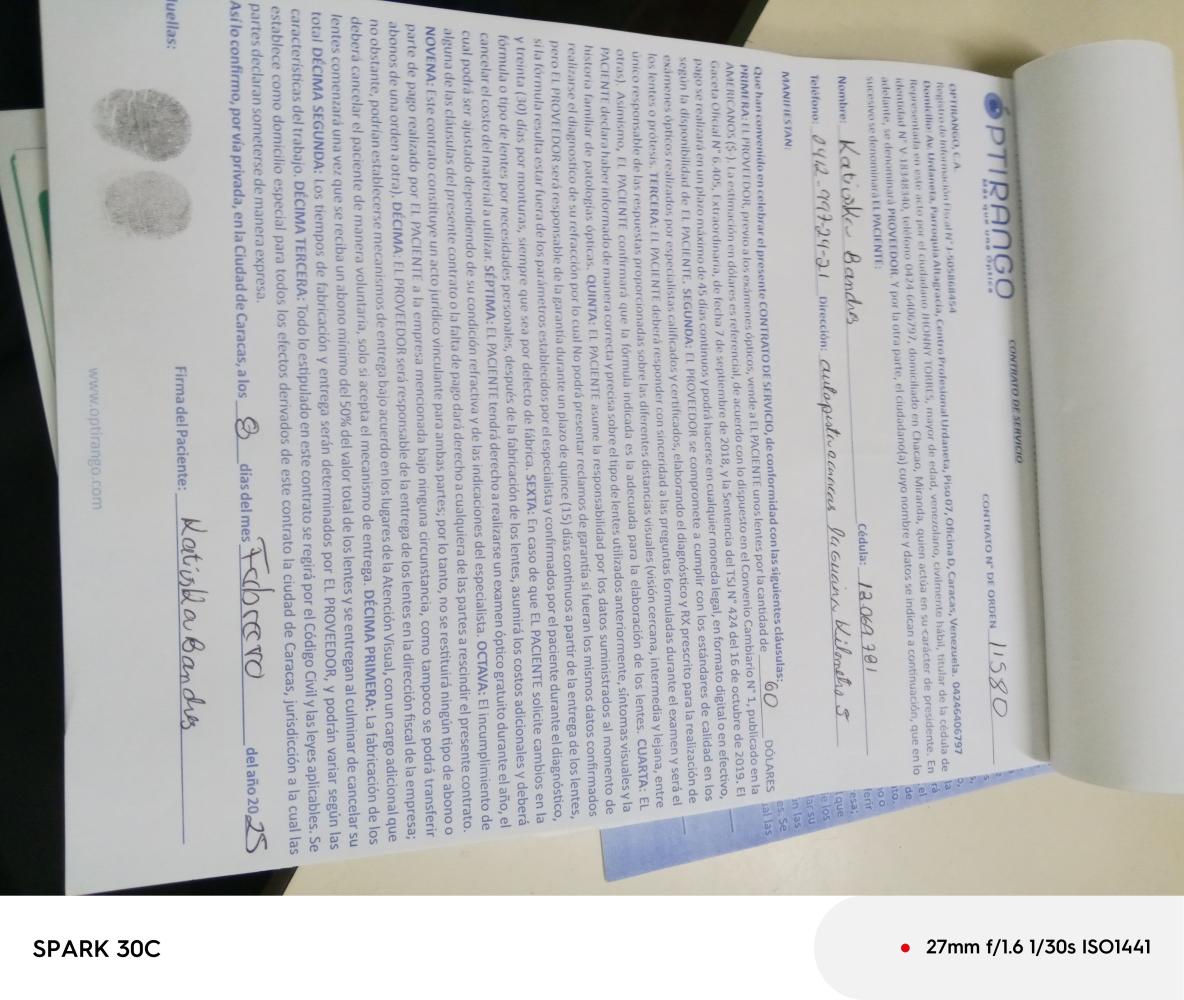 OPTIRANGO
más que una óptica
CONTRATO DE SERVICIO
CONTRATO N° DE ORDEN 11580
OPTIRANGO, C.A.
Registro de Información Fiscal N° J-505868454
Domicilio: Av. Urdaneta, Parroquia Altagracia, Centro Profesional Urdaneta, Piso 07, Oficina D, Caracas, Venezuela. 04246406797
Representada en este acto por el ciudadano: JHONNY TORRES, mayor de edad, venezolano, civilmente hábil, titular de la cédula de
identidad N° V 18348340, teléfono 0424 6406797, domiciliado en Chacao, Miranda, quien actúa en su carácter de presidente. En
adelante, se denominará PROVEEDOR. Y por la otra parte, el ciudadano(a) cuyo nombre y datos se indican a continuación, que en lo
sucesivo se denominará EL PACIENTE:
Nombre: Katiska Bandres Cédula: 12069781
Teléfono: 0412-997-24-21 Dirección: autopista caracas la guaira kilometro 5
MANIFIESTAN:
Que han convenido en celebrar el presente CONTRATO DE SERVICIO, de conformidad con las siguientes cláusulas:
PRIMERA: EL PROVEEDOR, previo a los exámenes ópticos, vende a EL PACIENTE unos lentes por la cantidad de 60 DÓLARES
AMERICANOS ($-). La estimación en dólares es referencial, de acuerdo con lo dispuesto en el Convenio Cambiario N° 1, publicado en la
Gaceta Oficial N° 6.405, Extraordinaria, de fecha 7 de septiembre de 2018, y la Sentencia del TSJ N° 424 del 16 de octubre de 2019. El
pago se realizará en un plazo máximo de 45 días continuos y podrá hacerse en cualquier moneda legal, en formato digital o en efectivo,
según la disponibilidad de EL PACIENTE. SEGUNDA: EL PROVEEDOR se compromete a cumplir con los estándares de calidad en los
exámenes ópticos realizados por especialistas calificados y certificados, elaborando el diagnóstico y RX prescrito para la realización de
los lentes o prótesis. TERCERA: EL PACIENTE deberá responder con sinceridad a las preguntas formuladas durante el examen y será el
único responsable de las respuestas proporcionadas sobre las diferentes distancias visuales (visión cercana, intermedia y lejana, entre
otras). Asimismo, EL PACIENTE confirmará que la fórmula indicada es la adecuada para la elaboración de los lentes. CUARTA: EL
PACIENTE declara haber informado de manera correcta y precisa sobre el tipo de lentes utilizados anteriormente, síntomas visuales y la
historia familiar de patologías ópticas. QUINTA: EL PACIENTE asume la responsabilidad por los datos suministrados al momento de
realizarse el diagnostico de su refracción por lo cual No podrá presentar reclamos de garantía si fueran los mismos datos confirmados
pero EL PROVEEDOR será responsable de la garantía durante un plazo de quince (15) días continuos a partir de la entrega de los lentes,
y treinta (30) días por monturas, siempre que sea por defecto de fábrica. SEXTA: En caso de que EL PACIENTE solicite cambios en la
fórmula o tipo de lentes por necesidades personales, después de la fabricación de los lentes, asumirá los costos adicionales y deberá
cancelar el costo del material a utilizar. SÉPTIMA: EL PACIENTE tendrá derecho a realizarse un examen óptico gratuito durante el año, el
cual podrá ser ajustado dependiendo de su condición refractiva y de las indicaciones del especialista. OCTAVA: El incumplimiento de
alguna de las cláusulas del presente contrato o la falta de pago dará derecho a cualquiera de las partes a rescindir el presente contrato.
NOVENA: Este contrato constituye un acto jurídico vinculante para ambas partes; por lo tanto, no se restituirá ningún tipo de abono o
parte de pago realizado por EL PACIENTE a la empresa mencionada bajo ninguna circunstancia, como tampoco se podrá transferir
abonos de una orden a otra). DÉCIMA: EL PROVEEDOR será responsable de la entrega de los lentes en la dirección fiscal de la empresa;
no obstante, podrían establecerse mecanismos de entrega bajo acuerdo en los lugares de la Atención Visual, con un cargo adicional que
deberá cancelar el paciente de manera voluntaria, solo si acepta el mecanismo de entrega. DÉCIMA PRIMERA: La fabricación de los
lentes comenzará una vez que se reciba un abono mínimo del 50% del valor total de los lentes y se entregan al culminar de cancelar su
total DÉCIMA SEGUNDA: Los tiempos de fabricación y entrega serán determinados por EL PROVEEDOR, y podrán variar según las
características del trabajo. DÉCIMA TERCERA: Todo lo estipulado en este contrato se regirá por el Código Civil y las leyes aplicables. Se
establece como domicilio especial para todos los efectos derivados de este contrato la ciudad de Caracas, jurisdicción a la cual las
partes declaran someterse de manera expresa.
Así lo confirmo, por vía privada, en la Ciudad de Caracas, a los 8 días del mes Febrero del año 2025
Huellas:
Firma del Paciente: Katiska Bandres
www.optirango.com
SPARK 30C
27mm f/1.6 1/30s ISO1441